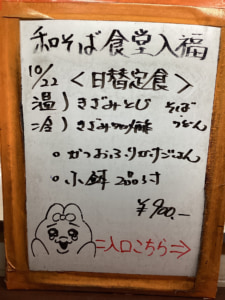 和そば食堂入福
10/22 <日替定食>
温) きざみとじ そば
冷) きざみ うどん
。かつおふりかけごはん
。小鉢2品付
¥900.-
⇒入口こちら⇒